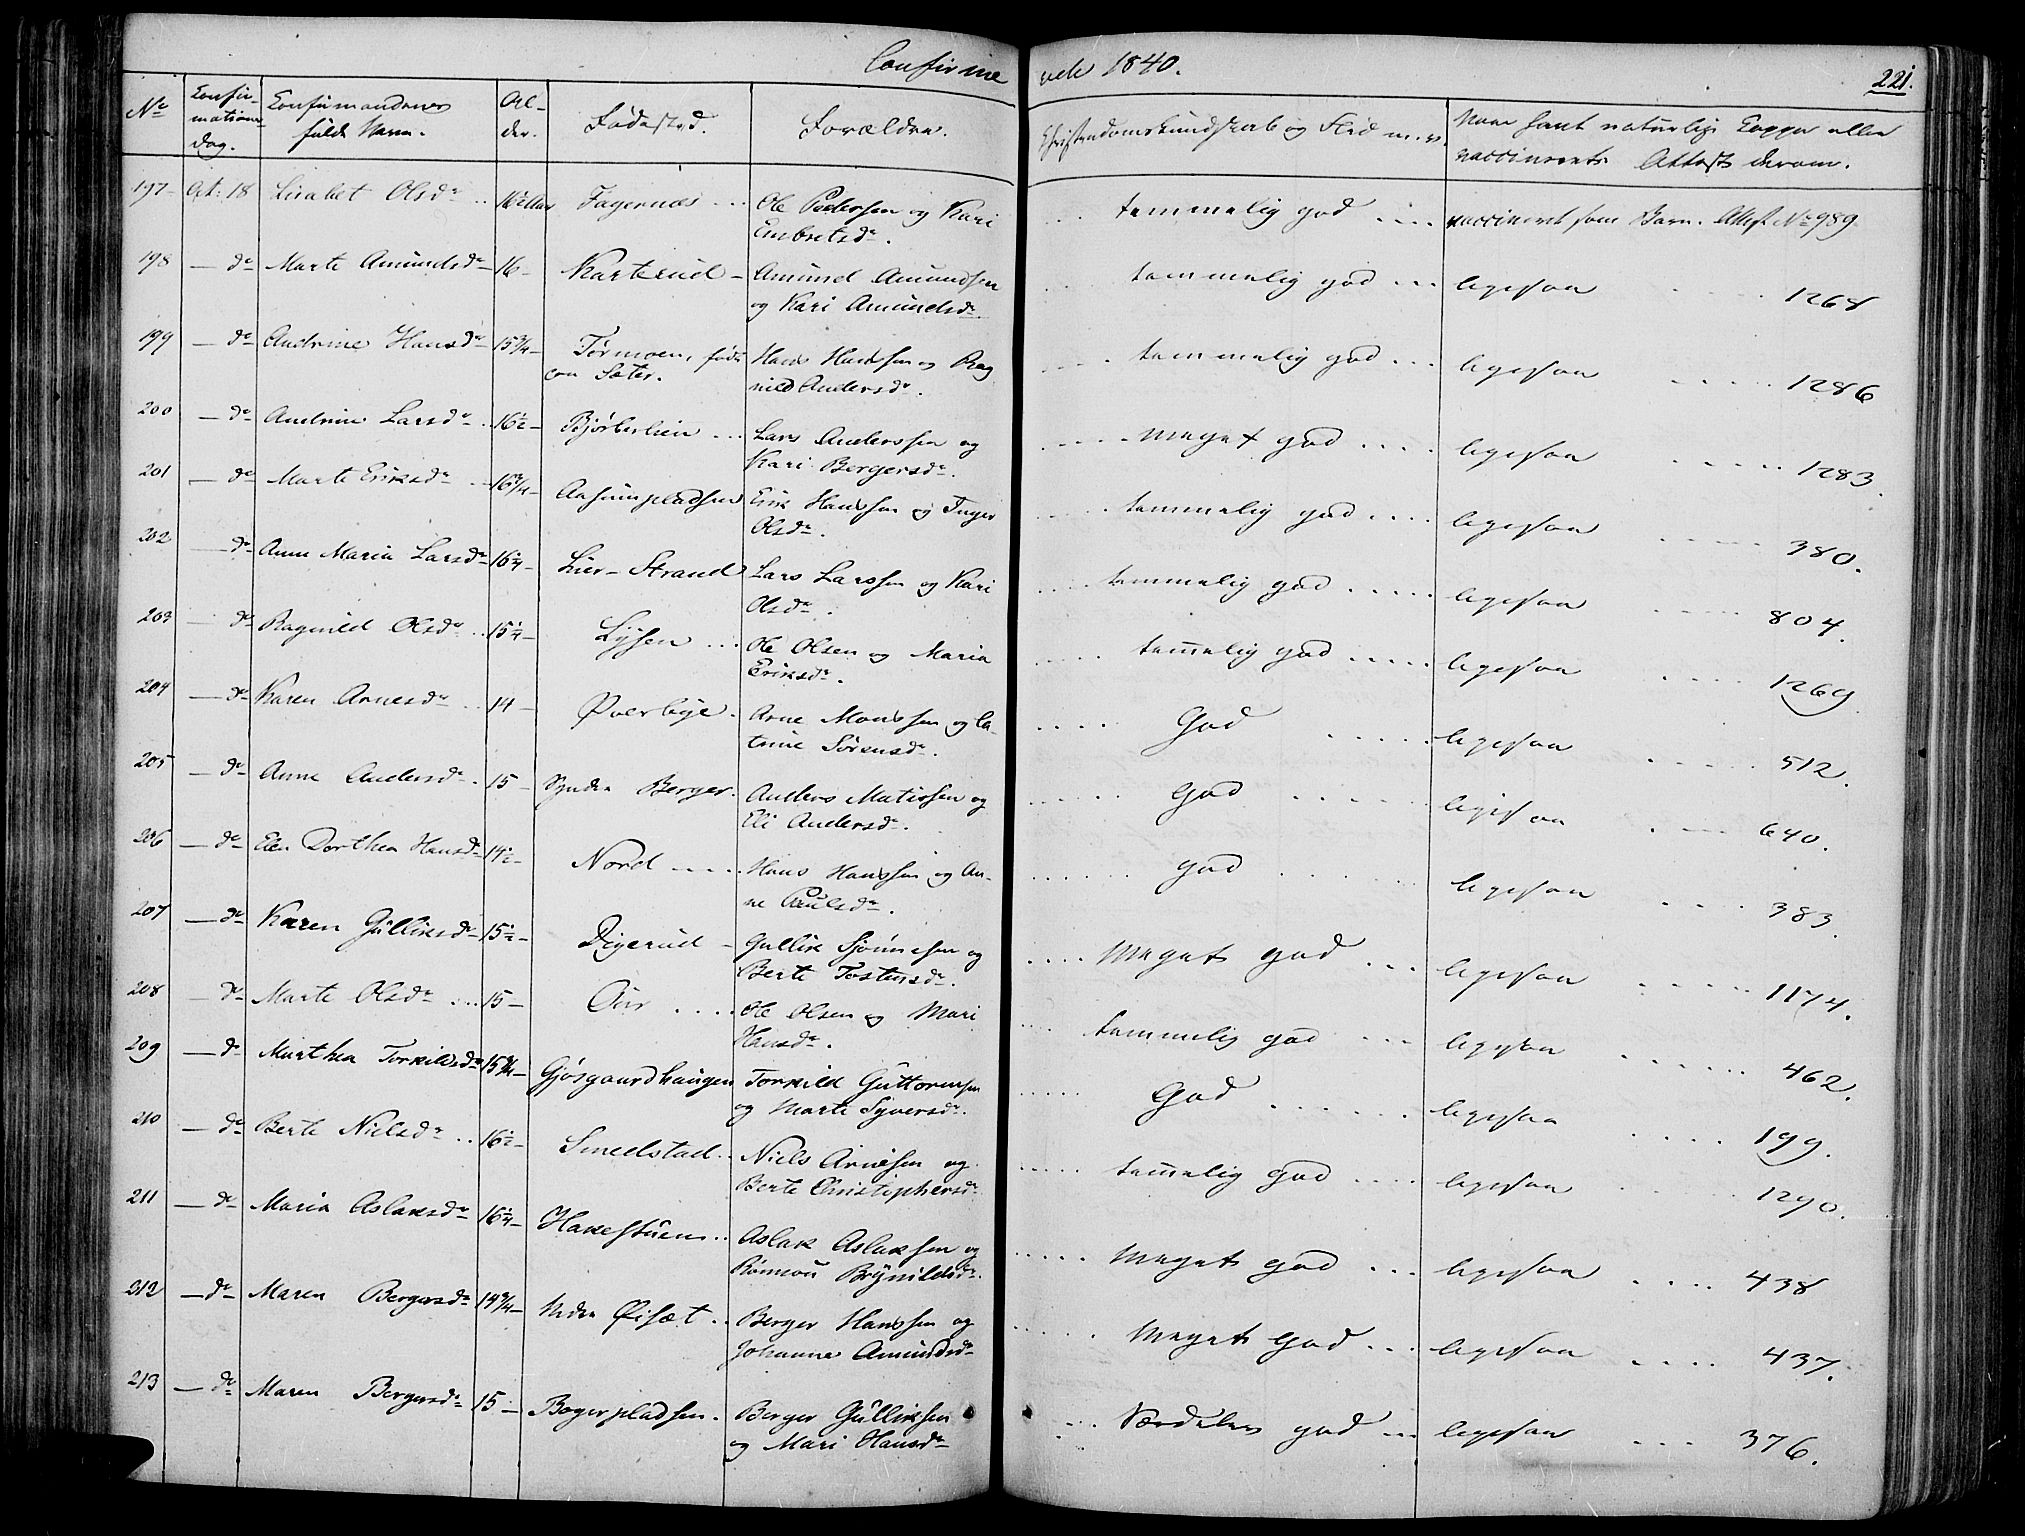 Confirme rede 1840. 221.
No Confirmations Dag. Confirmandenes fulde Navn. Alder. Fødested. Forældre. Christendomskundskab og Flid m.v. Naar havt naturlige Kopper eller vaccineret. Attest derom.
197 Oct: 18 Lisabet Olsdr 16½ Aar Fagernæs Ole Pedersen og Kari
Embretsdr. temmelig god vaccineret som Barn. Attest No 989
198 do Marte Amundsdr 16 Karterud Amund Amundsen
og Kari Amundsdr. temmelig god ligesaa 1268
199 do Andrine Hansdr 15¾ Tørmoen, født
paa Sæter. Hans Hansen og Rag
nild Andersdr. temmelig god ligesaa 1286
200 do Andrine Larsdr 16½ Bjørberlien Lars Anderssen og
Kari Bergersdr. meget god ligesaa 1283.
201 do Marte Eriksdr 16¾ Aasumpladsen Erik Hanssen og Inger
Olsdr. temmelig god ligesaa 380.
202 do Anne Maria Larsdr 16¼ Lier-Strand Lars Larssen og Kari
Olsdr. temmelig god ligesaa 804.
203 do Ragnild Olsdr 15¼ Lysen Ole Olsen og Maria
Eriksdr. temmelig god ligesaa 1269
204 do Karen Arnesdr 14 Øverbye Arne Monssen og Ca-
trine Sørensdr. God ligesaa 512.
205 do Anne Andersdr 15 Søndre Berger Anders Matissen og
Eli Andersdr. God ligesaa 640.
206 do Elen Dorthea Hansdr 14½ Nord Hans Hanssen og An-
ne Paulsdr. god ligesaa 383.
207 do Karen Gulliksdr 15½ Digerud Gullik Sjønnesen og
Berte Tostensdr. Meget god ligesaa 1174.
208 do Marte Olsdr 15 Aur Ole Olsen og Mari
Hansdr. temmelig god ligesaa 462.
209 do Marthea Torkildsdr 15¾ Gjøsgaardhaugen Torkild Guttormsen
og Marte Syversdr. God ligesaa 199.
210 do Berte Nielsdr 16½ Smedstad Niels Arnesen og
Berte Christophersdr. temmelig god ligesaa 1290.
211 do Maria Aslaksdr 16¼ Hakestuen Aslak Aslaksen og
Rønnou Brynildsdr. Meget god ligesaa 438
212 do Maren Bergersdr 14¾ Nedre Øisæt Berger Hanssen og
Johanne Amundsdr. Meget god ligesaa 437.
213 do Maren Bergersdr 15 Bogerpladsen Berger Gulliksen
og Mari Hansdr. Særdeles god ligesaa 376.